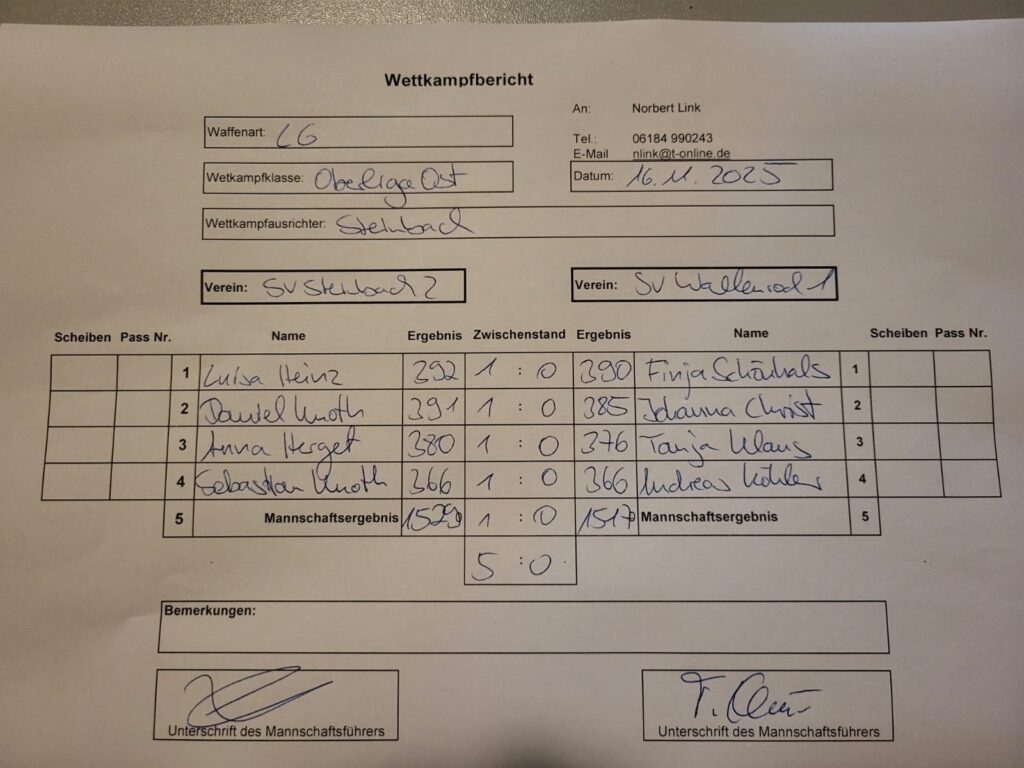 Wettkampfbericht
An: Norbert Link
Waffenart: LG
Tel.: 06184 990243
E-Mail nlink@t-online.de
Wetkampfklasse: Oberliga Ost
Datum: 16.11.2025
Wettkampfausrichter: Steinbach
Verein: SV Steinbach 2 Verein: SV Wallenrod 1
Scheiben Pass Nr. Name Ergebnis Zwischenstand Ergebnis Name Scheiben Pass Nr.
1 Luisa Heinz 392 1 : 0 390 Finja Schönhals 1
2 Daniel Knoth 391 1 : 0 385 Johanna Christ 2
3 Anna Herget 380 1 : 0 376 Tanja Klaus 3
4 Sebastian Knoth 366 1 : 0 366 Andreas Köhler 4
5 Mannschaftsergebnis 1529 1 : 0 1517 Mannschaftsergebnis 5
5 : 0
Bemerkungen:
Unterschrift des Mannschaftsführers Unterschrift des Mannschaftsführers